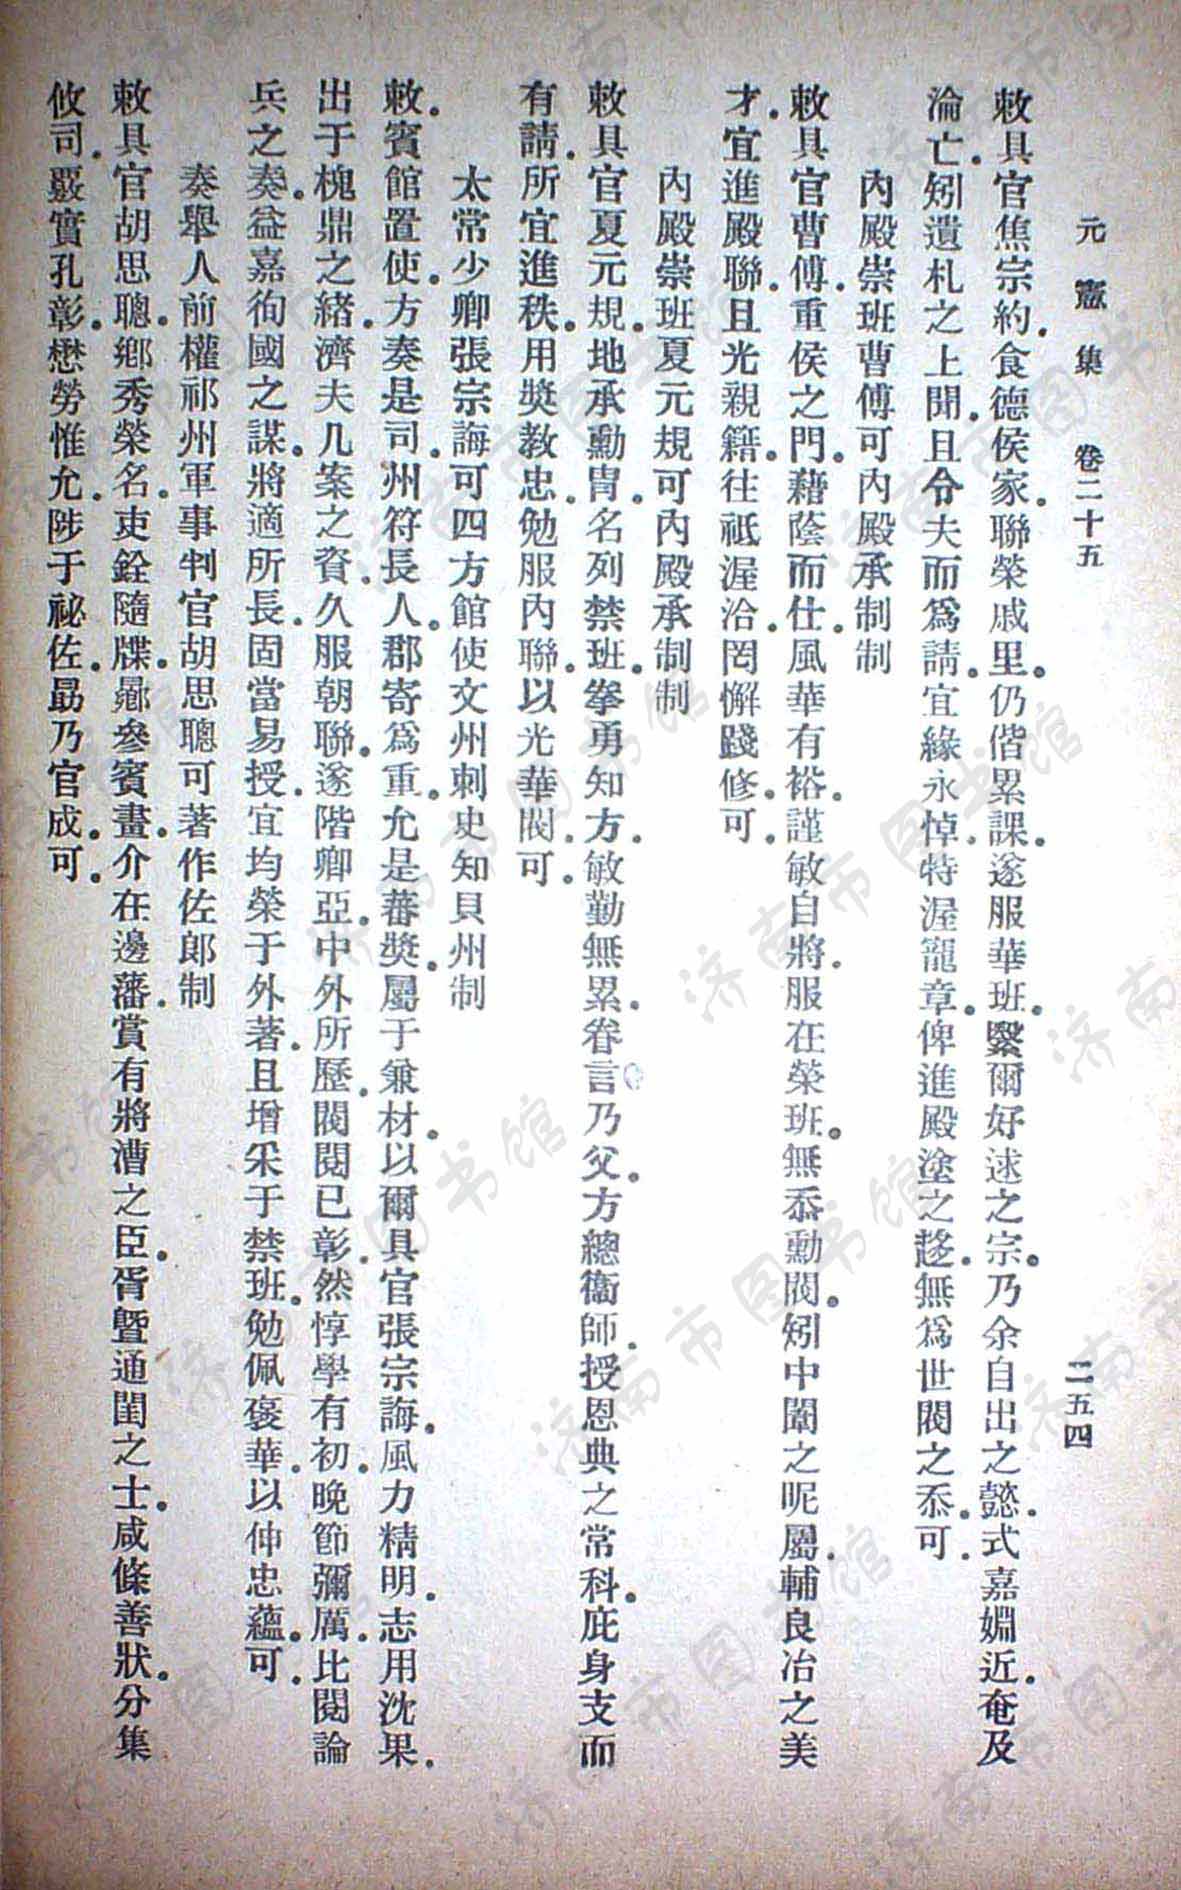 元憲集 卷二十五 二五四
敕具官焦宗約。食德侯家。聯榮戚里。仍偕累課。遂服華班。繄爾好逑之宗。乃余自出之懿。式嘉婣近。奄及
淪亡。矧遺札之上聞。且令夫而爲請。宜緣永悼。特渥寵章。俾進殿塗之趍。無爲世閥之忝。可。
內殿崇班曹傅可內殿承制制
敕具官曹傅。重侯之門。藉蔭而仕。風華有裕。謹敏自將。服在榮班。無忝勳閥。矧中闈之昵屬。輔良冶之美
才。宜進殿聯。且光親籍。往祗渥洽。罔懈踐修。可。
內殿崇班夏元規可內殿承制制
敕具官夏元規。地承勳冑。名列禁班。拳勇知方。敏勤無累。眷言乃父。方總衞師。授恩典之常科。庇身支而
有請。所宜進秩。用奬敎忠。勉服內聯。以光華閥。可。
太常少卿張宗誨可四方館使文州刺史知貝州制
敕。賓館置使。方奏是司。州符長人。郡寄爲重。允是蕃奬。屬于兼材。以爾具官張宗誨。風力精明。志用沈果。
出于槐鼎之緒。濟夫几案之資。久服朝聯。遂階卿亞。中外所歷。閥閱已彰。然惇學有初。晚節彌厲。比閱論
兵之奏。益嘉徇國之謀。將適所長。固當易授。宜均榮于外著。且增釆于禁班。勉佩褒華。以伸忠蘊。可。
奏舉人前權祁州軍事判官胡思聰可著作佐郞制
敕具官胡思聰。鄕秀榮名。吏銓隨牒。曏參賓畫。介在邊藩。賞有將漕之臣。胥曁通閨之士。咸條善狀。分集
攸司。覈實孔彰。懋勞惟允。陟于祕佐。勗乃官成。可。